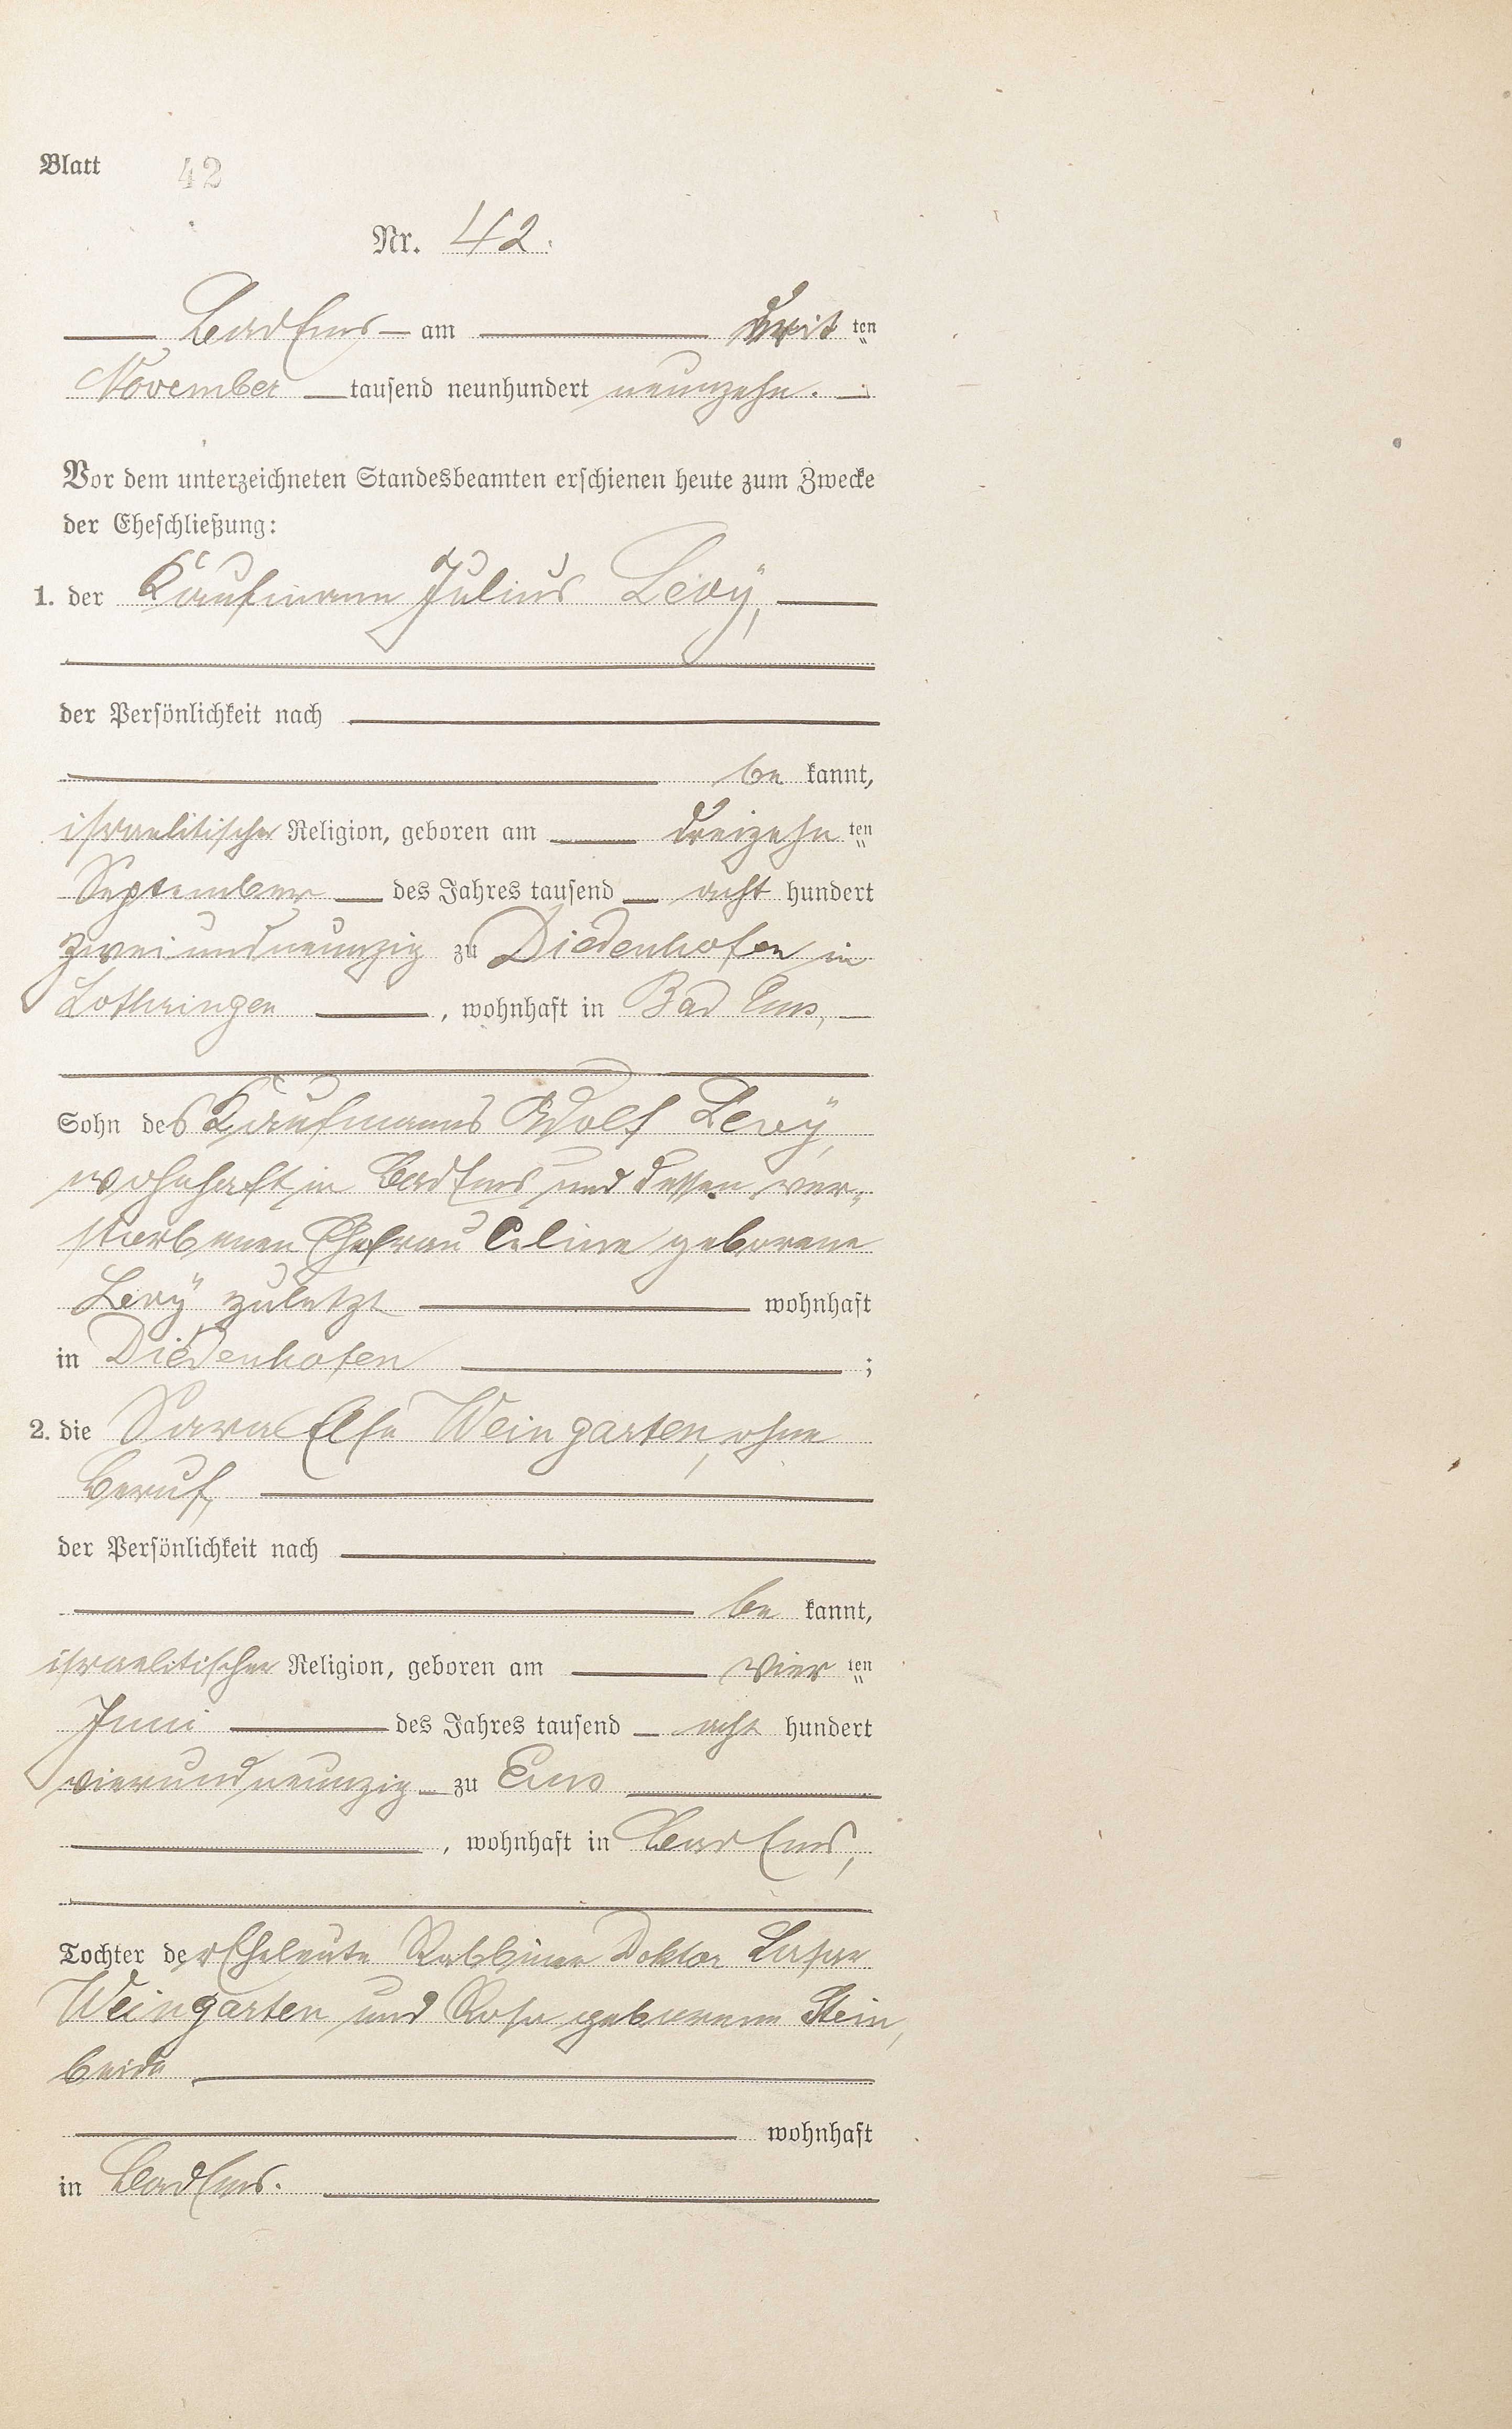 Blatt 42
Nr. 42.
Bad Ems am drit ten
November tausend neunhundert neunzehn.
Vor dem unterzeichneten Standesbeamten erschienen heute zum Zwecke
der Eheschließung:
1. der Kaufmann Julius Levÿ,
der Persönlichkeit nach
be kannt,
israelitischer Religion, geboren am dreizehn ten
September des Jahres tausend acht hundert
zweiundneunzig zu Diedenhofen in
Lothringen, wohnhaft in Bad Ems,
Sohn des Kaufmanns Adolf Levÿ,
wohnhaft in Bad Ems und dessen ver-
storbenen Ehefrau Celine geborene
Levÿ zuletzt wohnhaft
in Diedenhofen ;
2. die Sara Else Weingarten, ohne
Beruf,
der Persönlichkeit nach
be kannt,
israelitischer Religion, geboren am vier ten
Juni des Jahres tausend acht hundert
vierundneunzig zu Ems
, wohnhaft in Bad Ems,
Tochter der Eheleute Rabbiner Doktor Lasar
Weingarten und Rosa geborene Stein,
beide
wohnhaft
in Bad Ems.